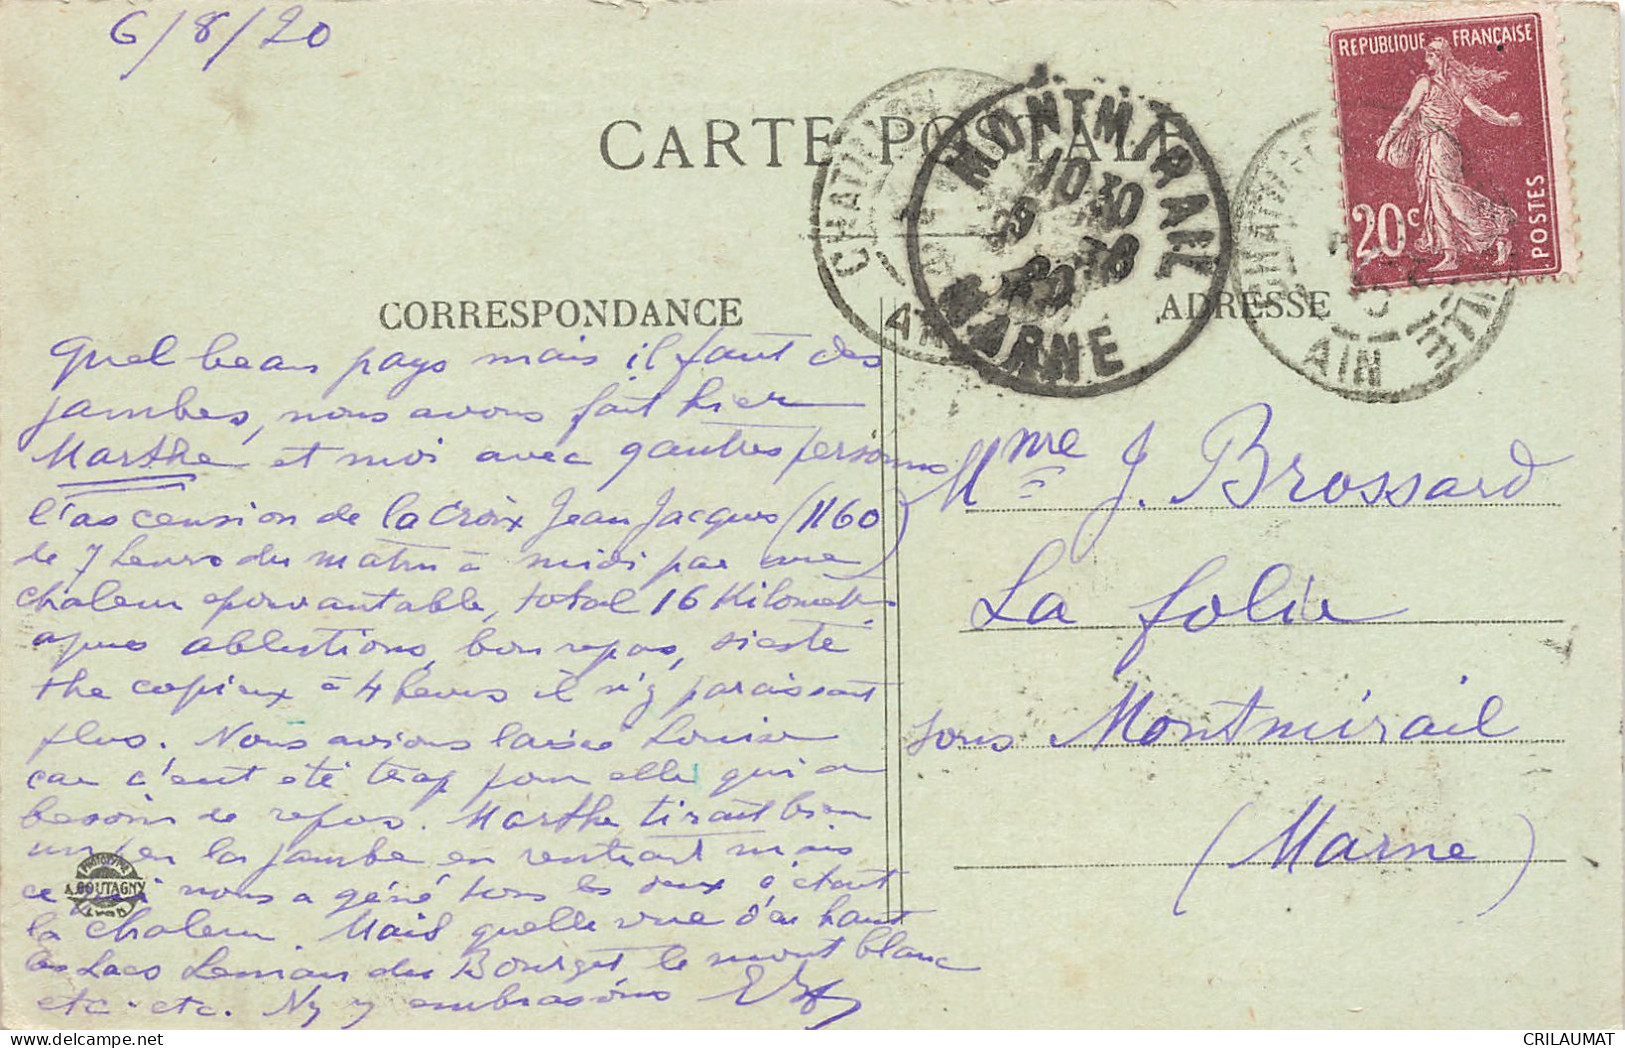 6/8/20
CARTE POSTALE
REPUBLIQUE FRANÇAISE
20c
POSTES
MONTMIRAIL
10 30
MARNE
CHATILLON
AIN
CORRESPONDANCE
ADRESSE
Quel beau pays mais il faut des
jambes, nous avons fait hier
Marthe et moi avec 9 autres personnes
l'ascension de la Croix Jean Jacques (1160)
de 7 heures du matin à midi par une
chaleur epouvantable, total 16 Kilomètres
après ablutions, bon repas, sieste
the copieux à 4 heures il n'y paraissait
plus. Nous avions laissé Louise
car c'eut été trop pour elle qui a
besoin de repos. Marthe tirait bien
un peu la jambe en rentrant mais
ce qui nous a gêné tous les deux c'etait
la chaleur. Mais quelle vue d'en haut
les Lacs Leman du Bourget, le mont blanc
etc. etc. embrassons
Mme J. Brossard
La folie
sous Montmirail
(Marne)
PHOTOTYPIE
A. BOUTAGNY
LYON
CRILAUMAT